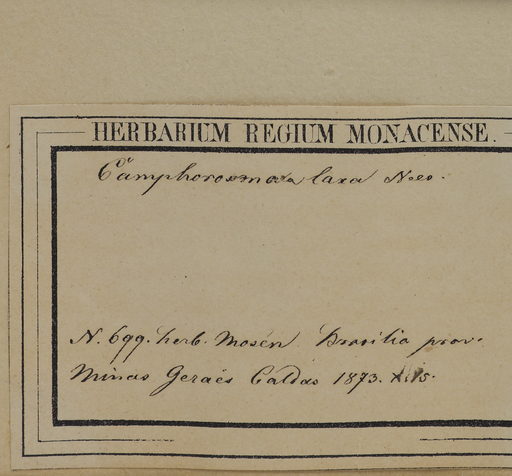 HERBARIUM REGIUM MONACENSE.
laxa Nees.
N. 699. herb. Mosén Brasilia prov.
Minas Geraës Caldas 1873.